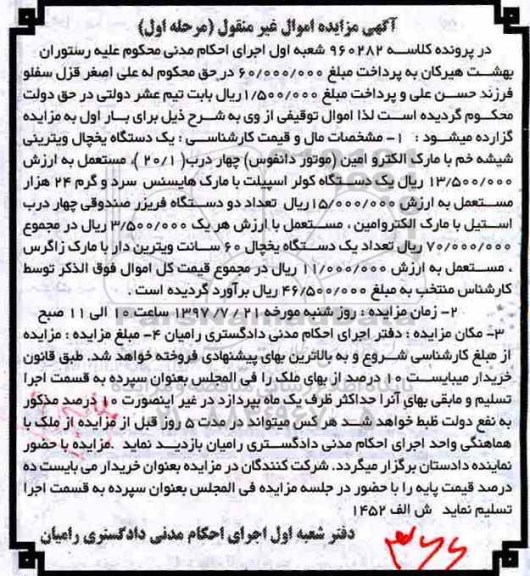 آگهی مزایده اموال غیر منقول (مرحله اول)
در پرونده کلاسه ۹۶۰۲۸۲ شعبه اول اجرای احکام مدنی محکوم علیه رستوران
بهشت هیرکان به پرداخت مبلغ ۶۰/۰۰۰/۰۰۰ در حق محکوم له علی اصغر قزل سفلو
فرزند حسن علی و پرداخت مبلغ ۱/۵۰۰/۰۰۰ ریال بابت نیم عشر دولتی در حق دولت
محکوم گردیده است لذا اموال توقیفی از وی به شرح ذیل برای بار اول به مزایده
گزارده میشود : ۱- مشخصات مال و قیمت کارشناسی : یک دستگاه یخچال ویترینی
شیشه خم با مارک الکترو امین (موتور دانفوس) چهار درب( ۲۰/۱ )، مستعمل به ارزش
۱۳/۵۰۰/۰۰۰ ریال یک دستگاه کولر اسپیلت با مارک هایسنس سرد و گرم ۲۴ هزار
مستعمل به ارزش ۱۵/۰۰۰/۰۰۰ ریال تعداد دو دستگاه فریزر صندوقی چهار درب
استیل با مارک الکتروامین ، مستعمل با ارزش هر یک ۳/۵۰۰/۰۰۰ ریال در مجموع
۷۰/۰۰۰/۰۰۰ ریال تعداد یک دستگاه یخچال ۶۰ سانت ویترین دار با مارک زاگرس
، مستعمل به ارزش ۱۱/۰۰۰/۰۰۰ ریال در مجموع قیمت کل اموال فوق الذکر توسط
کارشناس منتخب به مبلغ ۴۶/۵۰۰/۰۰۰ ریال برآورد گردیده است .
۲- زمان مزایده : روز شنبه مورخه ۲۱ /۷/ ۱۳۹۷ ساعت ۱۰ الی ۱۱ صبح
۳- مکان مزایده : دفتر اجرای احکام مدنی دادگستری رامیان ۴- مبلغ مزایده : مزایده
از مبلغ کارشناسی شروع و به بالاترین بهای پیشنهادی فروخته خواهد شد. طبق قانون
خریدار میبایست ۱۰ درصد از بهای ملک را فی المجلس بعنوان سپرده به قسمت اجرا
تسلیم و مابقی بهای آنرا حداکثر ظرف یک ماه بپردازد در غیر اینصورت ۱۰ درصد مذکور
به نفع دولت قبط خواهد شد هر کس میتواند در مدت ۵ روز قبل از مزایده از ملک با
هماهنگی واحد اجرای احکام مدنی دادگستری رامیان بازدید نماید .مزایده با حضور
نماینده دادستان برگزار میگردد. شرکت کنندگان در مزایده بعنوان خریدار می بایست ده
درصد قیمت پایه را با حضور در جلسه مزایده فی المجلس بعنوان سپرده به قسمت اجرا
تسلیم نماید ش الف ۱۴۵۲
دفتر شعبه اول اجرای احکام مدنی دادگستری رامیان